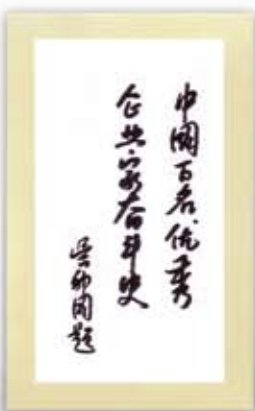 中國百名优秀
企业家奋斗史
吴印国题